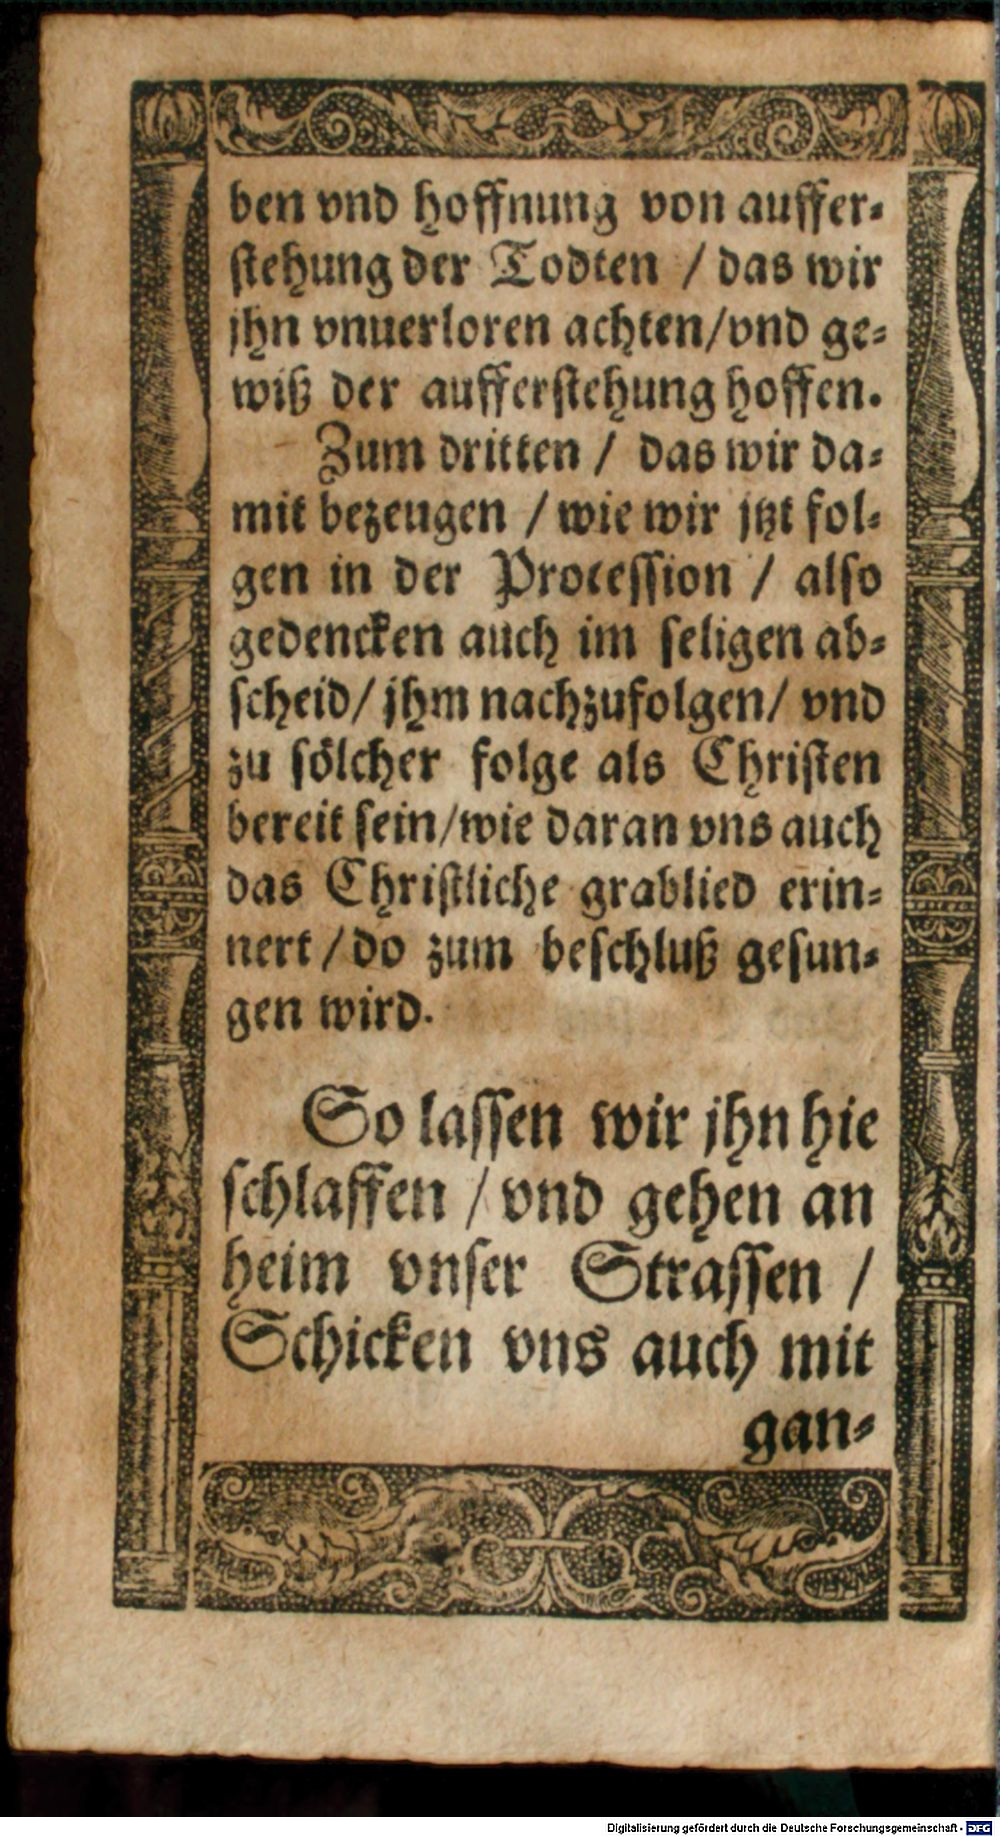 ben vnd hoffnung von auffer⸗
stehung der Todten / das wir
jhn vnuerloren achten/vnd ge⸗
wiß der aufferstehung hoffen.
Zum dritten / das wir da⸗
mit bezeugen / wie wir jtzt fol⸗
gen in der Procession / also
gedencken auch im seligen ab⸗
scheid/ jhm nachzufolgen/ vnd
zu sölcher folge als Christen
bereit sein/wie daran vns auch
das Christliche grablied erin⸗
nert / do zum beschluß gesun⸗
gen wird.
So lassen wir jhn hie
schlaffen / vnd gehen an
heim vnser Strassen /
Schicken vns auch mit
gan⸗
Digitalisierung gefördert durch die Deutsche Forschungsgemeinschaft - DFG